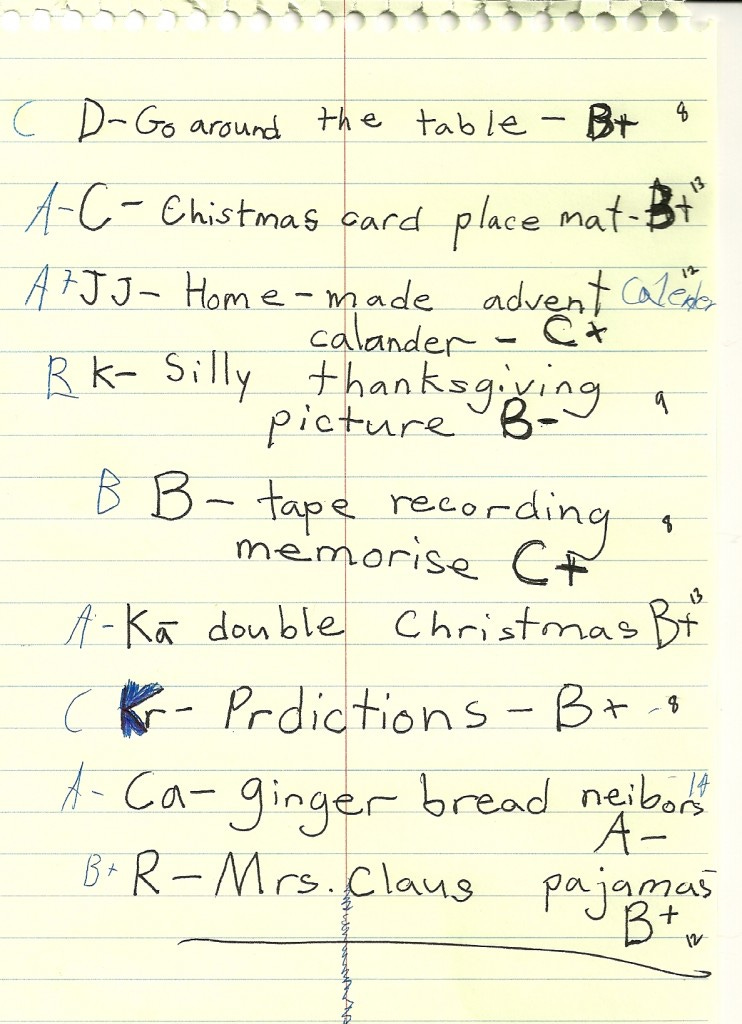 C D- Go around the table - B+ 8
A- C- Chistmas card place mat - B+ 13
A+ JJ- Home-made advent Calender 12
calander - C+
B K- Silly thanksgiving
picture B- 9
B B- tape recording 8
memorise C+
A- Ka- double Christmas B+ 13
C Kr- Prdictions - B+ - 8
A- Ca- ginger bread neibors 14
A-
B+ R- Mrs. Claus pajamas
B+ 12